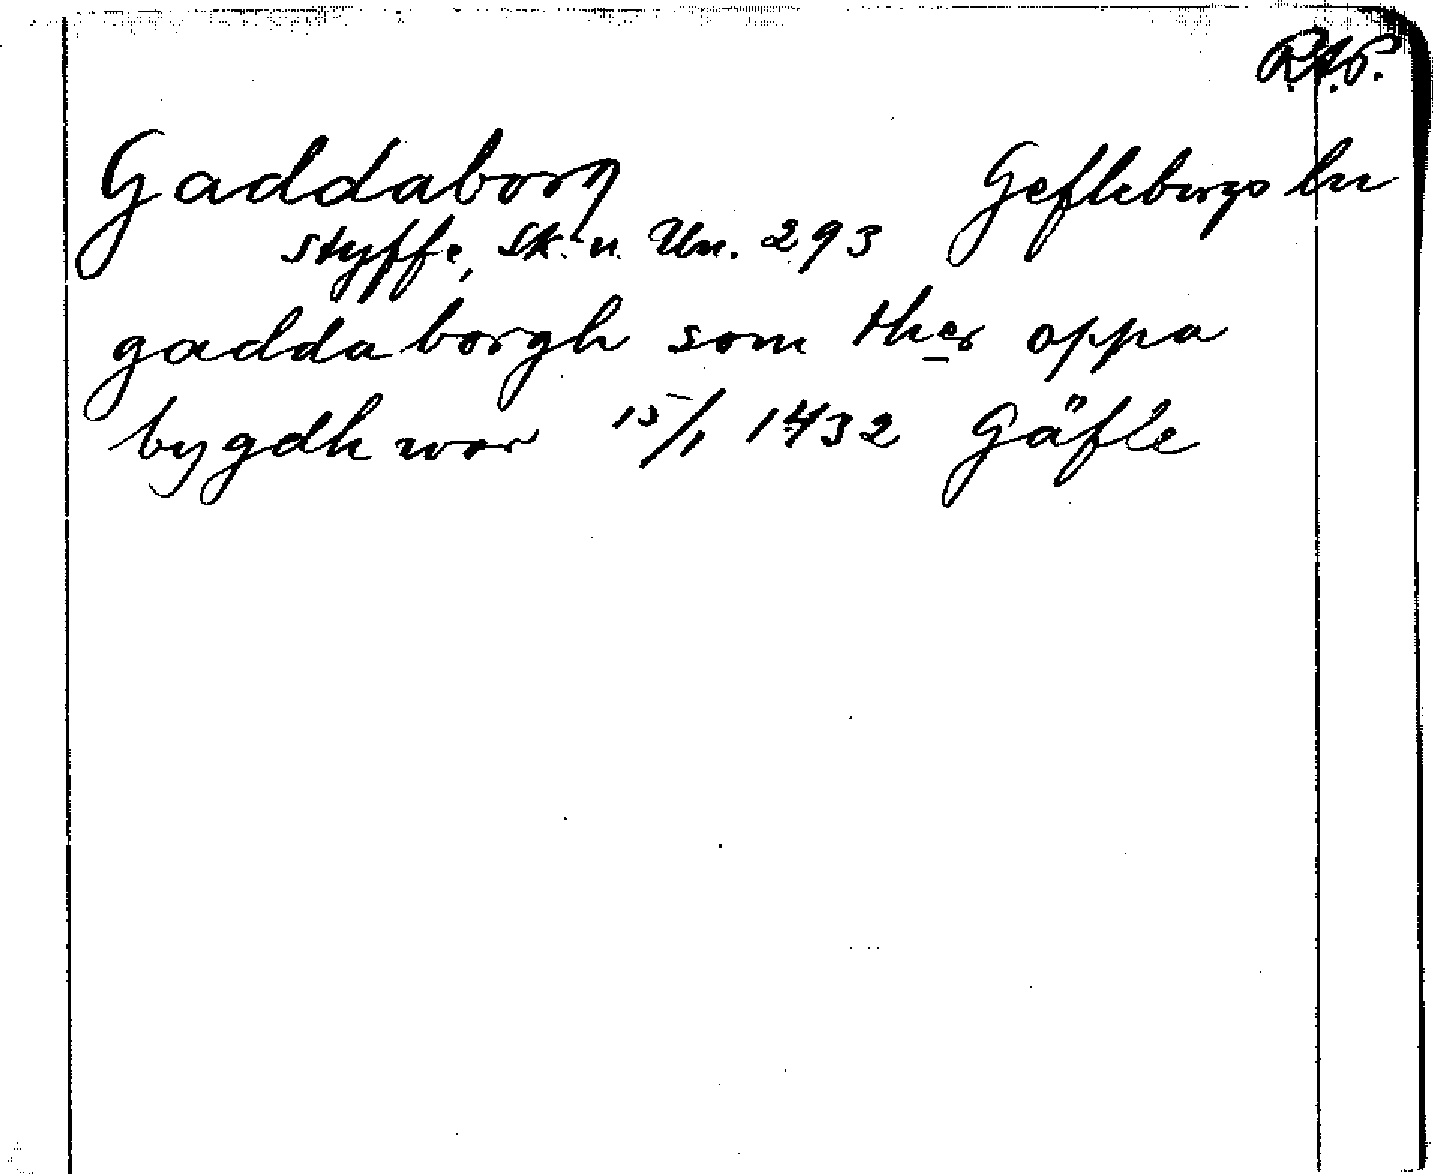 R.A.P.
Gaddaborg Gefleborgs ln
Styffe, Sk. u. Un. 293
gaddaborgh som ther oppa
bygdh war 15/1 1432 Gäfle